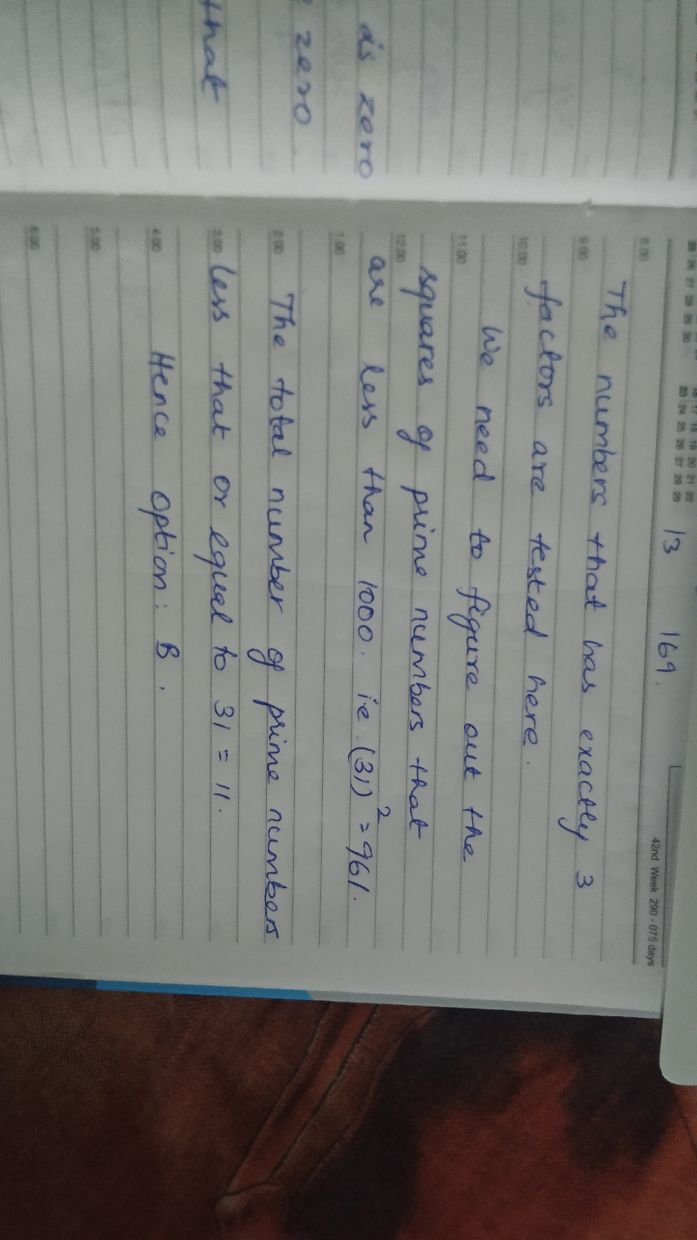 is zero
zero
that
13 169.
42nd Week 290 - 075 days
8.00
The numbers that has exactly 3
9.00
factors are tested here.
10.00
We need to figure out the
11.00
squares of prime numbers that
12.00
are less than 1000. ie. (31)² = 961.
1.00
The total number of prime numbers
2.00
less that or equal to 31 = 11.
3.00
Hence option: B.
4.00
5.00
6.00